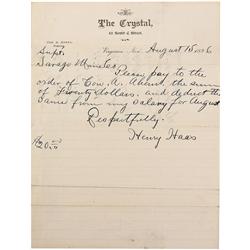 The Crystal,
Virginia, Nev. August 15 1886
Supt.
Savage Mine
Please pay to the
order of Con. A. Ahern, the sum
of Twenty Dollars, and deduct the
same from my salary for August
Respectfully.
Henry Haas
$20